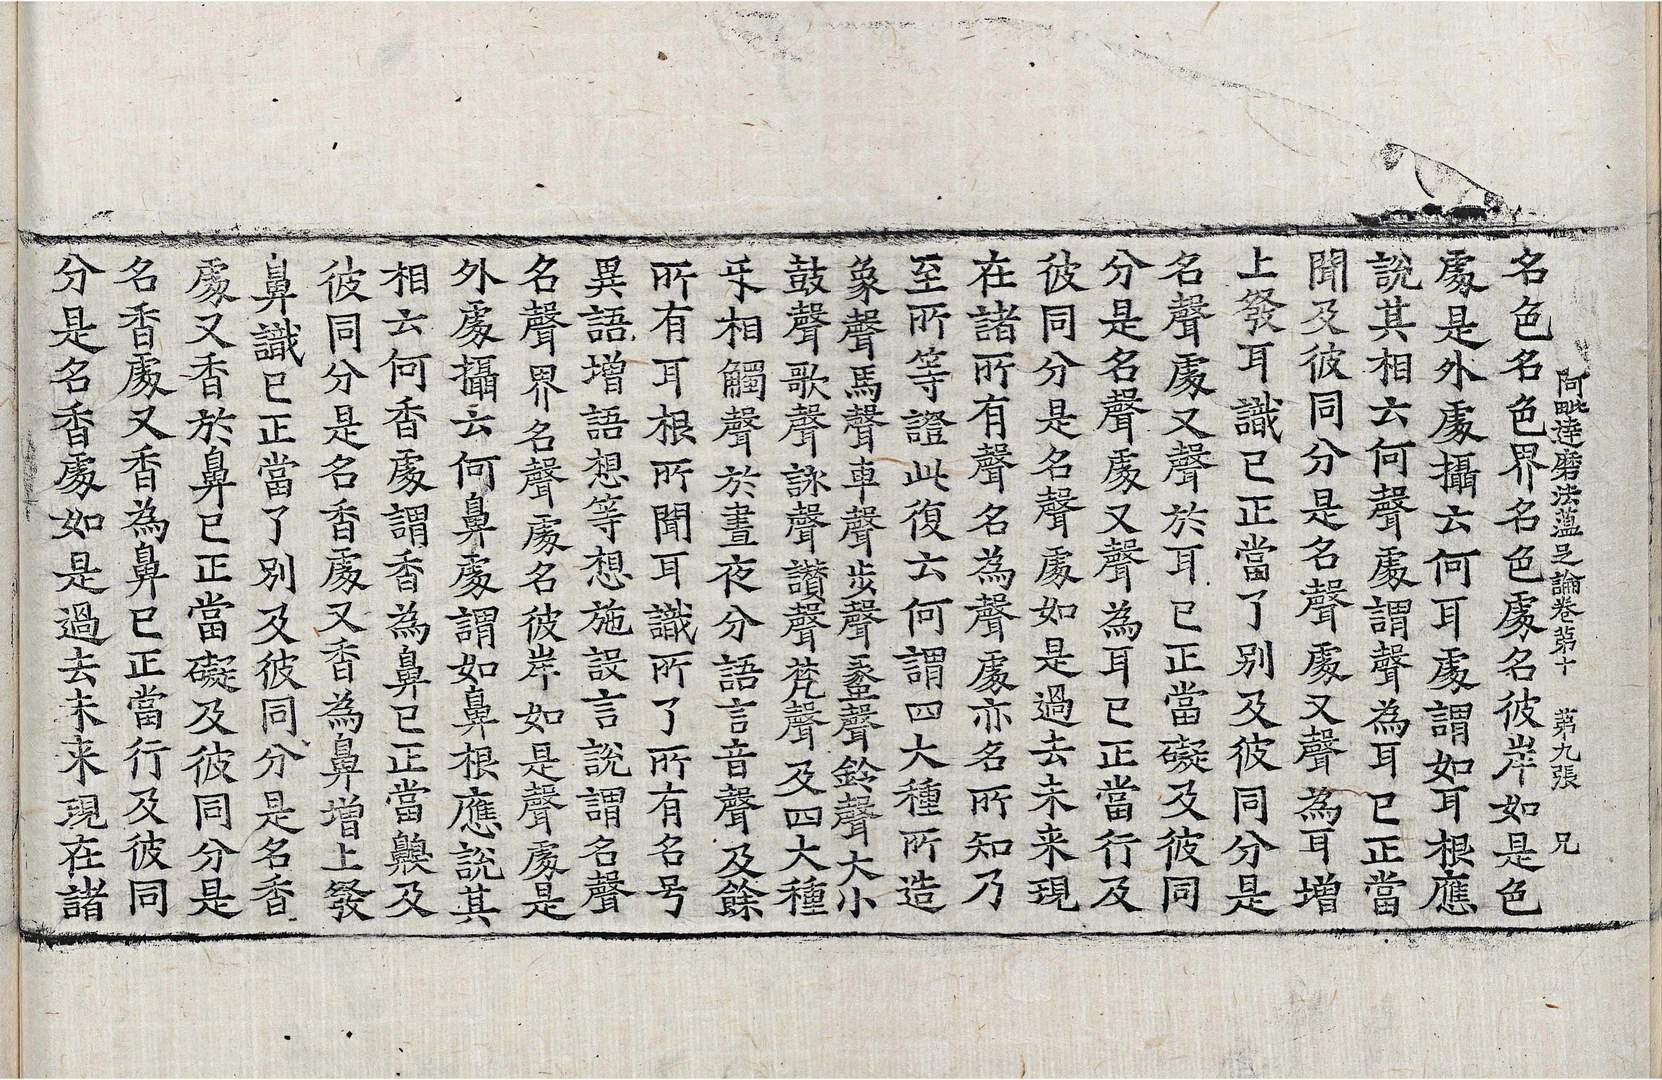 阿毗達磨法蘊足論卷第十　第九張　兄
名色名色界名色處名彼岸如是色
處是外處攝云何耳處謂如耳根應
說其相云何聲處謂聲為耳已正當
聞及彼同分是名聲處又聲為耳增
上發耳識已正當了別及彼同分是
名聲處又聲於耳已正當礙及彼同
分是名聲處又聲為耳已正當行及
彼同分是名聲處如是過去未来現
在諸所有聲名為聲處亦名所知乃
至所等證此復云何謂四大種所造
象聲馬聲車聲步聲蠡聲鈴聲大小
鼓聲歌聲詠聲讃聲梵聲及四大種
互相觸聲於晝夜分語言音聲及餘
所有耳根所聞耳識所了所有名号
異語增語想等想施設言說謂名聲
名聲界名聲處名彼岸如是聲處是
外處攝云何鼻處謂如鼻根應說其
相云何香處謂香為鼻已正當齅及
彼同分是名香處又香為鼻增上發
鼻識已正當了別及彼同分是名香
處又香於鼻已正當礙及彼同分是
名香處又香為鼻已正當行及彼同
分是名香處如是過去未来現在諸